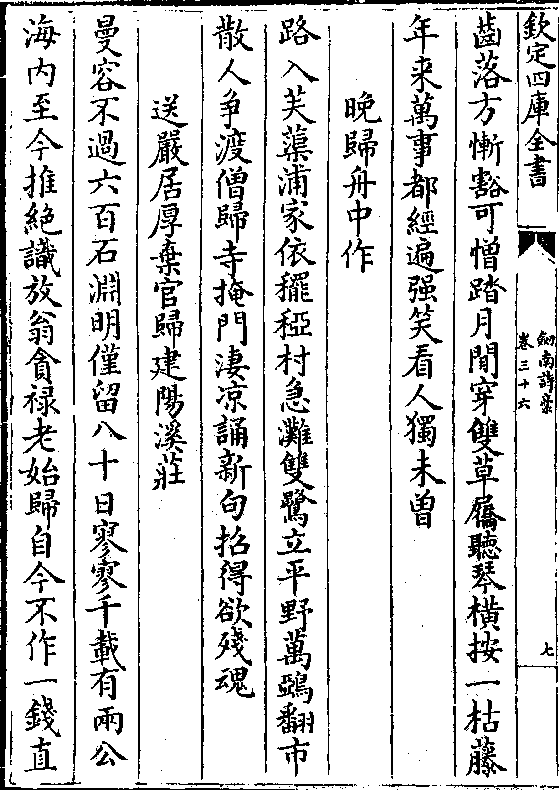 欽定四庫全書
劍南詩藁
卷三十六
七
齒落方慚豁可憎踏月閒穿雙草屩聽琴橫按一枯藤
年来萬事都經遍强笑看人獨未曽
晚歸舟中作
路入芙蕖浦家依䆉稏村急灘雙鷺立平野萬鵶翻市
散人争渡僧歸寺掩門淒凉誦新句招得欲殘魂
送嚴居厚棄官歸建陽溪莊
曼容不過六百石淵明僅留八十日寥寥千載有兩公
海内至今推絶識放翁貪禄老始歸自今不作一錢直